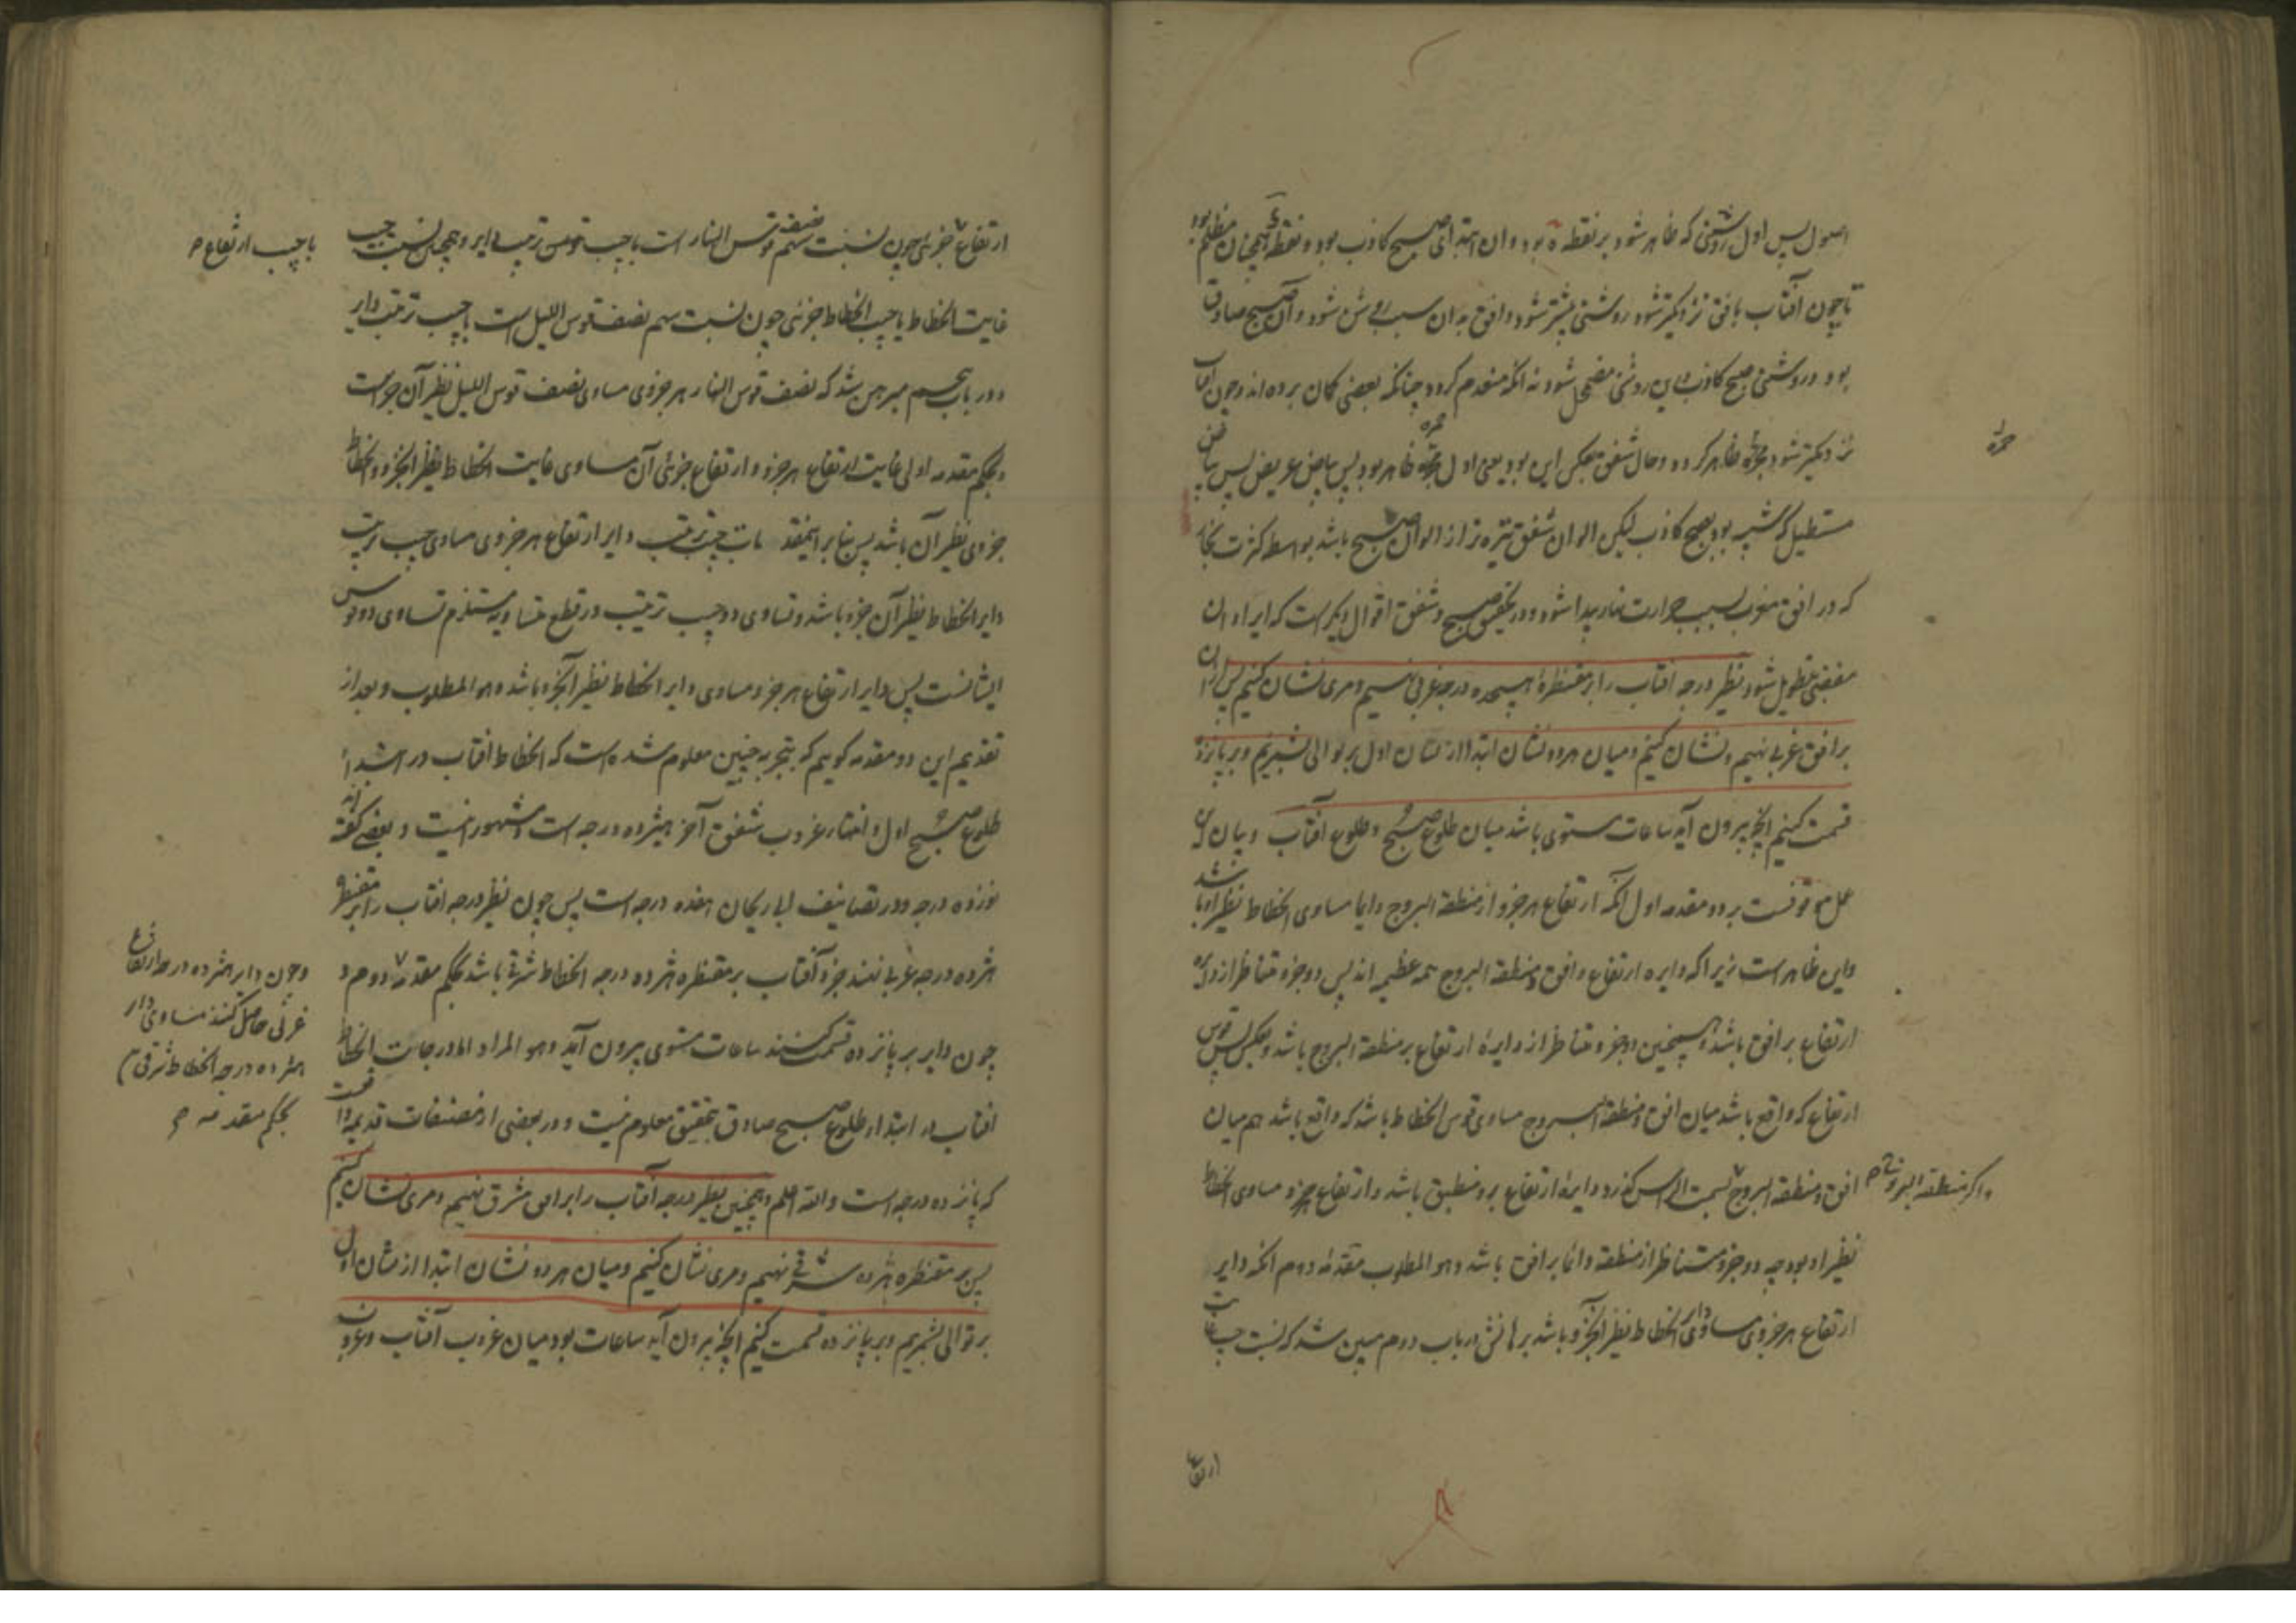 اصول پس اول روشنی که ظاهر شود بر نقطه ه بود و ان ابتدای صبح کاذب بود و نقطه همچنان مظلم بود
تا چون آفتاب بافق نزدیکتر شود روشنی بیشتر شود و افق بدان سبب روشن شود و آن صبح صادق
بود و روشنی صبح کاذب باین روشنی مضمحل شود نه آنکه منعدم کردد چنانکه بعضی کمان برده اند و چون آفتاب
نزدیکتر شود حمرة ظاهر کردد و حال شفق بعکس این بود یعنی اول حمره ظاهر بود پس بیاض عریض پس بیاض
حمرة
مستطیل که شبیه بود بصبح کاذب لیکن الوان شفق تیره تر از الوان صبح باشد بواسطه کثرت بخار
که در افق مغرب بسبب حرارت نهار پیدا شود و در تحقیق صبح و شفق اقوال دیکر است که ایراد ان
مفضی بتطویل شود نظیر درجه افتاب را بر مقنطرهٔ هیجده درجه غربی نهیم و مری نشان کنیم پس ان را
بر افق غربی نهیم و نشان کنیم و میان هر دو نشان ابتدا از نشان اول بر توالی بشمریم و بر پانزده
قسمت کنیم آنچه بیرون آید ساعات مستوی باشد میان طلوع صبح و طلوع آفتاب و بیان این
عمل موقوفست بر دو مقدمه اول آنکه ارتفاع هر جزو از منطقة البروج دایما مساوی انحطاط نظیر او باشد
و این ظاهر است زیرا که دایره ارتفاع و افق و منطقة البروج همه عظیمه اند پس دو جزو متناظر از دایره
ارتفاع بر افق باشد و همچنین دو جزو متناظر از دایرهٔ ارتفاع بر منطقة البروج باشد و بعکس پس قوس
ارتفاع که واقع باشد میان افق و منطقة البروج مساوی قوس انحطاط باشد که واقع باشد هم میان
افق و منطقة البروج بسمت الراس کذرد دایرهٔ ارتفاع برو منطبق باشد و ارتفاع جزو مساوی انحطاط
و اکر منطقة البروج
نظیر او بود چه دو جزو متناظر از منطقه دائما بر افق باشد و هو المطلوب مقدمهٔ دوم آنکه دایر
ارتفاع هر جزوی مساوی دایر انحطاط نظیر آنجزو باشد برهانش در باب دوم مبین شد که نسبت جیب غایت
ارتفاع
ارتفاع جزئی چون نسبت سهم نصف قوس النهار است با جیب ترتیب دایر و همچنین نسبت جیب
با جیب ارتفاع
غایت انحطاط با جیب انحطاط جزئی چون نسبت سهم نصف قوس اللیل است با جیب ترتیب دایر
و در باب پنجم مبرهن شد که نصف قوس النهار هر جزوی مساوی نصف قوس اللیل نظیر آن جزو است
و بحکم مقدمه اولی غایت ارتفاع هر جزو و ارتفاع جزئی آن مساوی غایت انحطاط نظیر آنجزو و انحطاط
جزوی نظیر آن باشد پس بنا بر اینمقدمات جیب ترتیب دایر ارتفاع هر جزوی مساوی جیب ترتیب
دایر انحطاط نظیر آن جزو باشد و تساوی دو جیب ترتیب در قطع متساویه مستلزم تساوی دو قوس
ایشانست پس دایر ارتفاع هر جزو مساوی دایر انحطاط نظیر آنجزو باشد و هو المطلوب و بعد از
تقدیم این دو مقدمه کوییم که بتجربه چنین معلوم شده است که انحطاط افتاب در ابتداء
طلوع صبح اول و انتهاء غروب شفق آخر هیژده درجه است و مشهور اینست و بعضی کفته اند
نوزده درجه و در تصانیف ابا ریحان هفده درجه است پس چون نظیر درجه افتاب را بر مقنطره
هژده درجه غربی نهند جزو آفتاب بر مقنطره هژده درجه انحطاط شرقی باشد بحکم مقدمه دوم و
و چون دایر هژده درجه ارتفاع
غربی حاصل کنند مساوی دایر
هژده درجه انحطاط شرقی
بحکم مقدمه
چون دایر بر پانزده قسمت کنند ساعات مستوی بیرون آید و هو المراد اما درجات انحطاط
افتاب در ابتداء طلوع صبح صادق بتحقیق معلوم نیست و در بعضی از مصنفات قدیمه
که پانزده درجه است والله اعلم و همچنین نظیر درجه آفتاب را بر افق مشرق نهیم و مری نشان کنیم
پس بر مقنطره هژده شرقی نهیم و مری نشان کنیم و میان هر دو نشان ابتدا از نشان اول
بر توالی بشمریم و بر پانزده قسمت کنیم آنچه بیرون آید ساعات بود میان غروب آفتاب و غروب